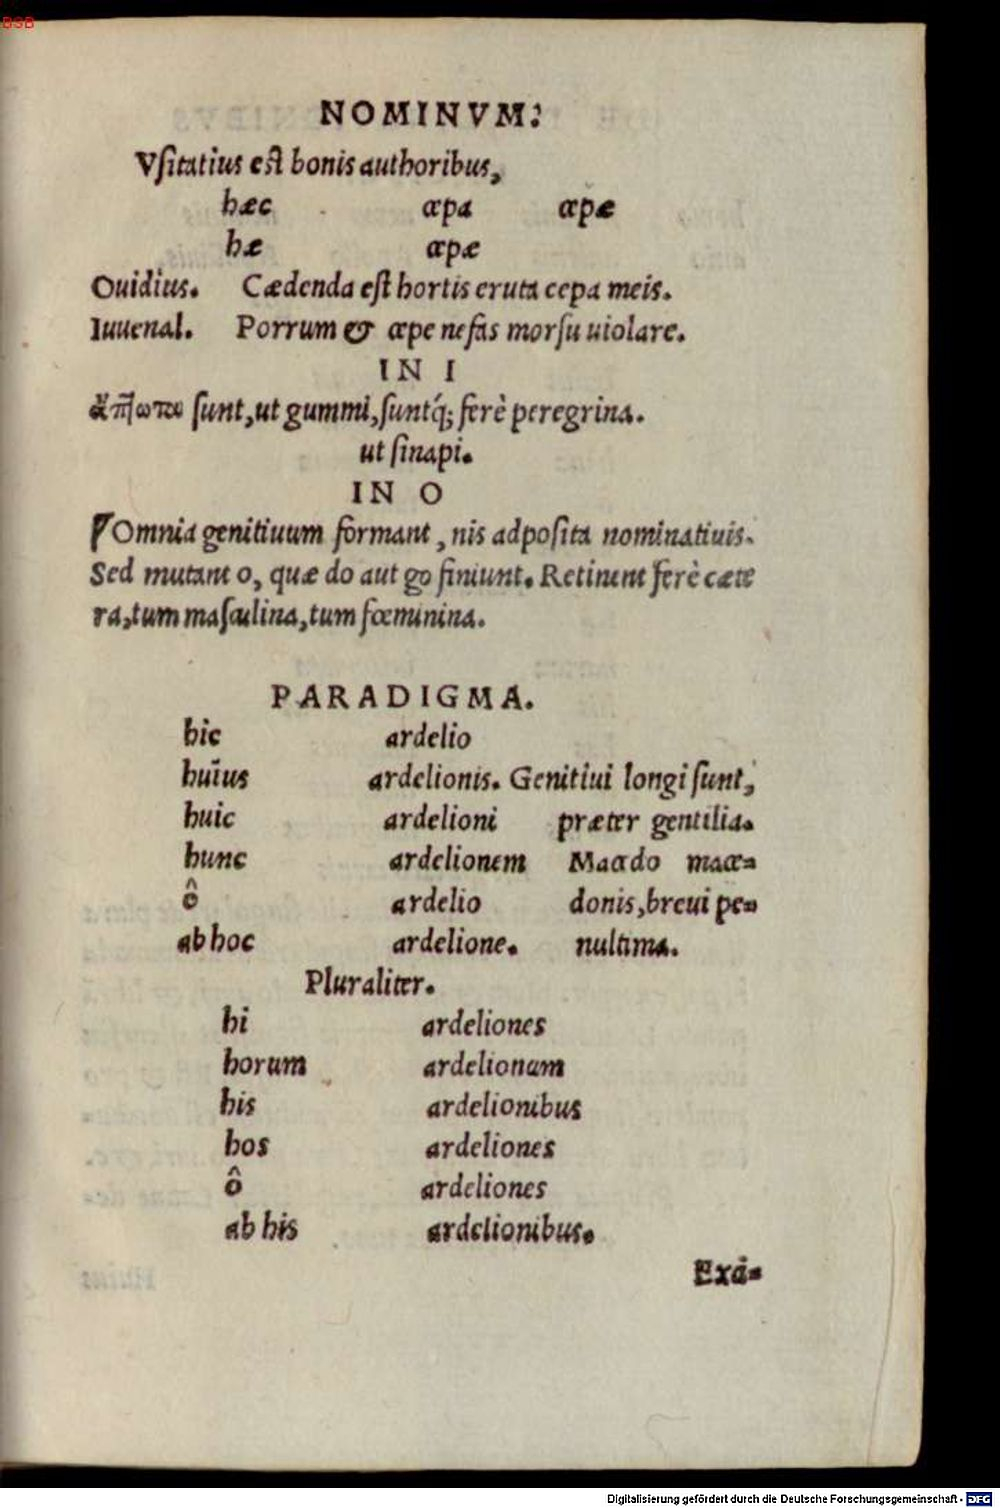 BSB
NOMINVM.
Vſitatius eſt bonis authoribus,
hæc cæpa cæpæ
hæ cæpæ
Ouidius. Cædenda eſt hortis eruta cepa meis.
Iuuenal. Porrum & cæpe nefas morſu uiolare.
IN I
ἄπτωτα ſunt, ut gummi, ſuntq́; ferè peregrina.
ut ſinapi.
IN O
Omnia genitiuum formant, nis adpoſita nominatiuis.
Sed mutant o, quæ do aut go finiunt. Retinent ferè cæte
ra, tum maſculina, tum fœminina.
PARADIGMA.
hic ardelio
huius ardelionis. Genitiui longi ſunt,
huic ardelioni præter gentilia.
hunc ardelionem Macedo mace-
ô ardelio donis, breui pe-
ab hoc ardelione. nultima.
Pluraliter.
hi ardeliones
horum ardelionum
his ardelionibus
hos ardeliones
ô ardeliones
ab his ardelionibus.
Exā-
Digitalisierung gefördert durch die Deutsche Forschungsgemeinschaft - DFG